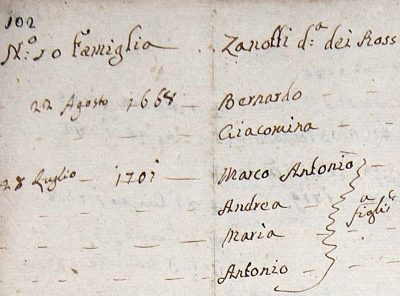 102
N.º 10 Famiglia Zanolli d.ª dei Ross
22 Agosto 1668 - Bernardo
Giacomina
28 Luglio - 1701 - Marco Antonio
Andrea
Maria figli
Antonio